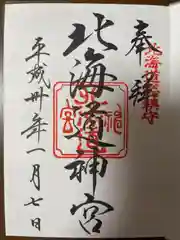 奉拝
北海道総鎮守
北海道神宮
平成卅一年一月七日